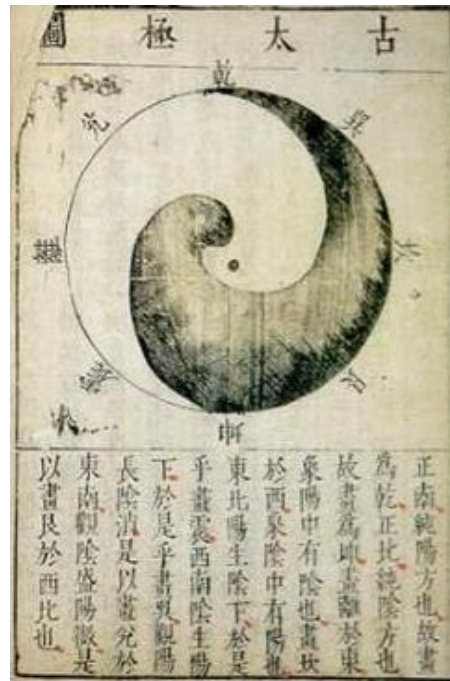 古太極圖
乾
兌
巽
離
坎
震
艮
坤
正南純陽方也故畫
為乾正北純陰方也
故畫為坤畫離於東
象陽中有陰也畫坎
於西象陰中有陽也
東北陽生陰下於是
乎畫震西南陰生陽
下於是乎畫巽觀陽
長陰消是以畫兌於
東南觀陰盛陽微是
以畫艮於西北也